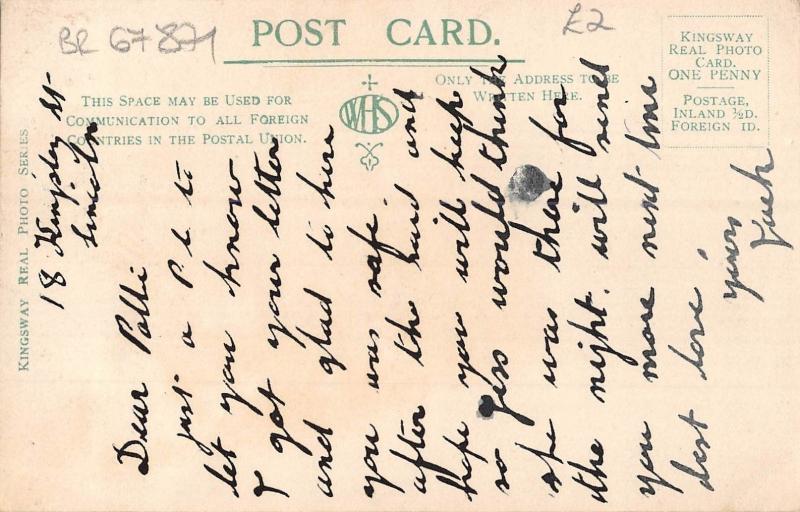 BR 67871
£2
POST CARD.
THIS SPACE MAY BE USED FOR
COMMUNICATION TO ALL FOREIGN
COUNTRIES IN THE POSTAL UNION.
WHS
ONLY THE ADDRESS TO BE
WRITTEN HERE.
KINGSWAY
REAL PHOTO
CARD.
ONE PENNY
POSTAGE,
INLAND ½D.
FOREIGN 1D.
KINGSWAY REAL PHOTO SERIES
18 St
Lincoln
Dear Polli
just a P.C. to
let you know
I got your letter
and glad to here
you was safe.
after the raid and
hope you will keep
so Jess would think
she was there for
the night. will send
you more next time
best love.
yours
Jack